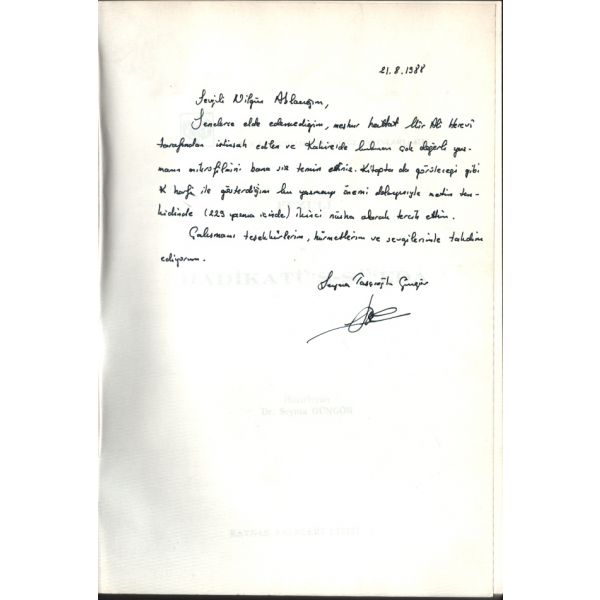 21.8.1988
Sevgili Nilgün Ablacığım,
Senelerce elde edemediğim, meşhur hattat Mir Ali Herevî
tarafından istinsah edilen ve Kahire'de bulunan çok değerli yaz-
manın mikrofilmini bana siz temin ettiniz. Kitapta da görüleceği gibi
K harfi ile gösterdiğim bu yazmayı önemi dolayısiyle metin ten-
kidinde (229 yazma içinde) ikinci nüsha olarak tercih ettim.
Çalışmamı teşekkürlerim, hürmetlerim ve sevgilerimle takdim
ediyorum.
Şeyma Güngör
HADİKATÜ'S-SÜEDA
Hazırlayan
Dr. Şeyma GÜNGÖR